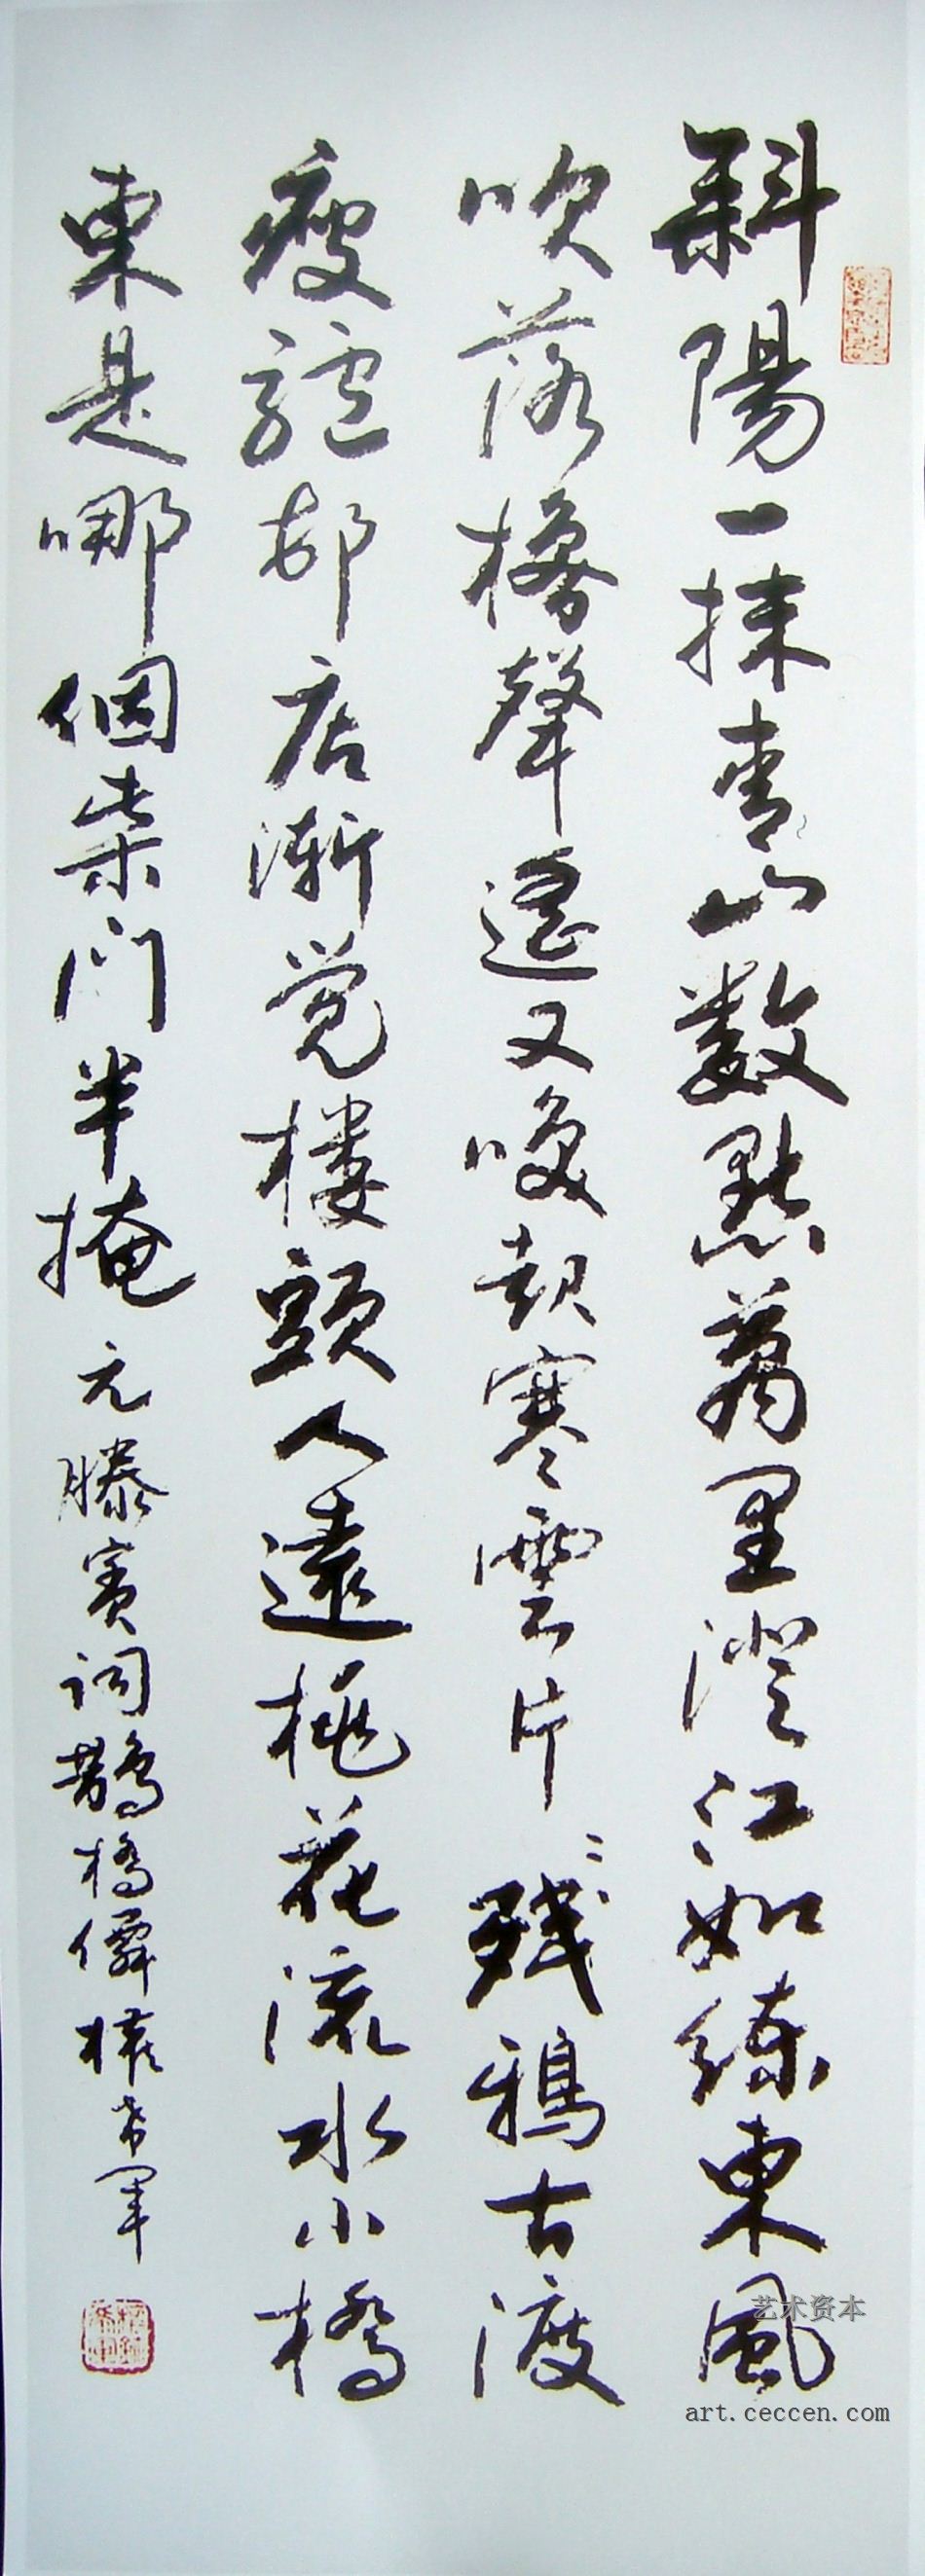 斜陽一抹青山數點萬里澄江如練東風
吹落櫓聲遥又喚起寒雲片〻殘鴉古渡
瘦驢邨店漸覺樓頭人遠桃花流水小橋
東是哪個柴門半掩
元滕賓词鵲橋僊權希軍
艺术资本
art.ceccen.com